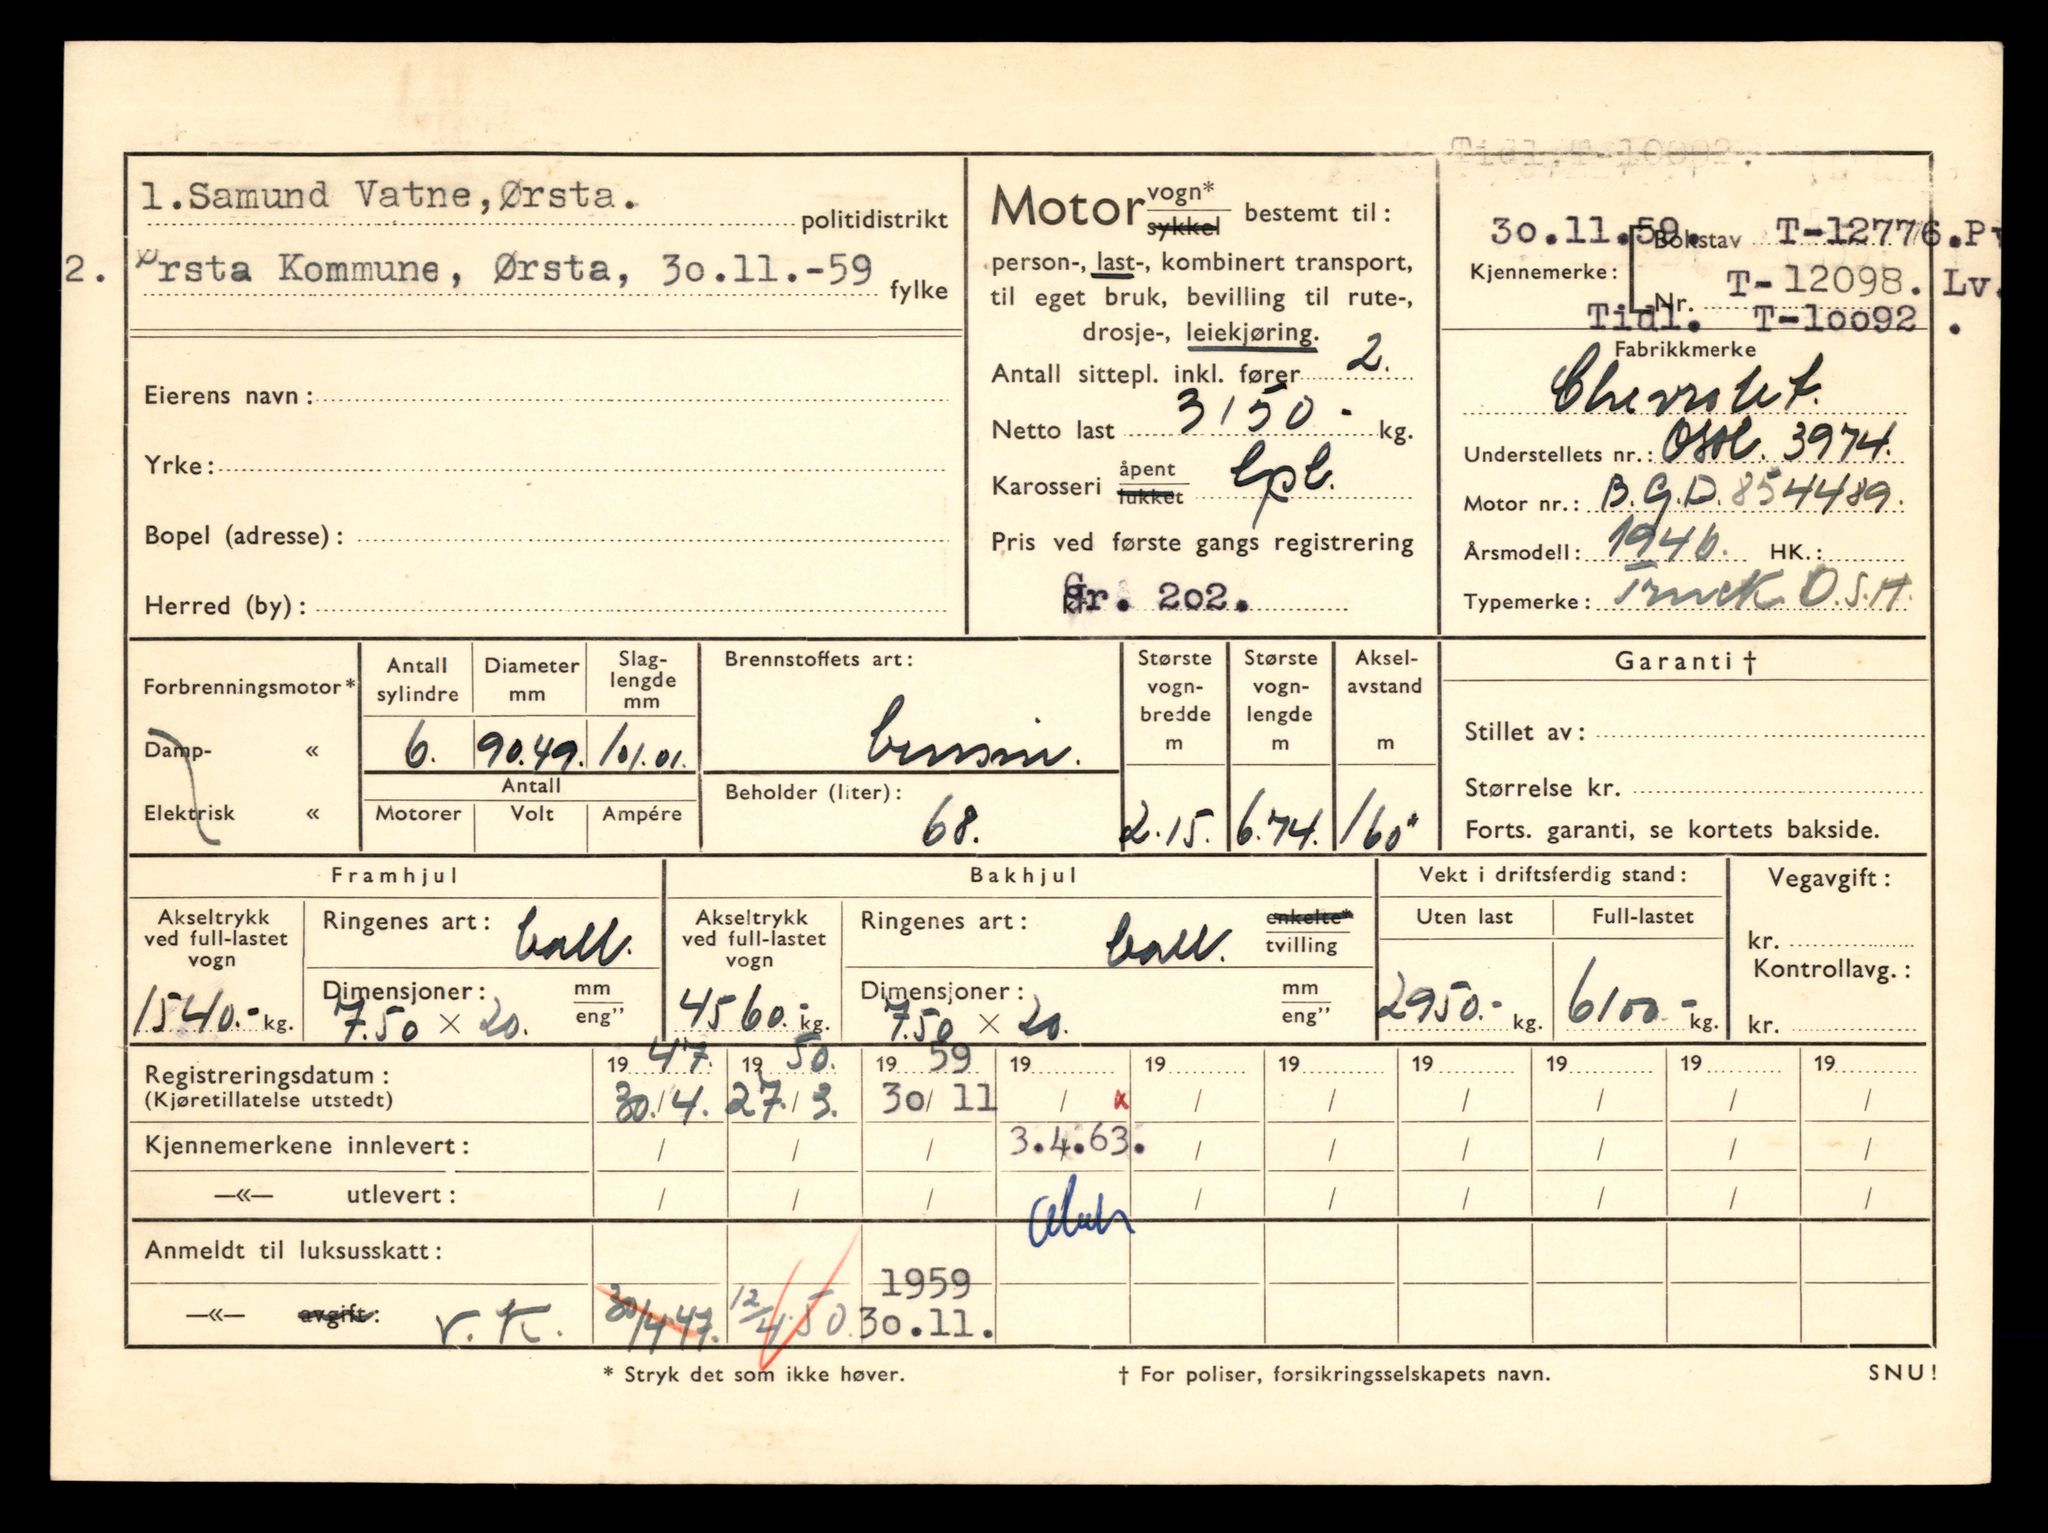 Tidl.T-10092.
1.Samund Vatne,Ørsta.
politidistrikt
2. Ørsta Kommune, Ørsta, 30.11.-59
fylke
Eierens navn:
Yrke:
Bopel (adresse):
Herred (by):
Motor vogn* sykkel bestemt til:
person-, last-, kombinert transport,
til eget bruk, bevilling til rute-,
drosje-, leiekjøring.
Antall sittepl. inkl. fører 2.
Netto last 3150- kg.
Karosseri åpent lukket
Pris ved første gangs registrering
Gr. 202.
30.11.59. Bokstav T-12776.Pv
Kjennemerke:
T-12098. Lv.
Nr.
Tidl. T-10092.
Fabrikkmerke
Chevrolet.
Understellets nr.: 3974.
Motor nr.: B.G.D. 854489.
Årsmodell: 1946. HK.:
Typemerke: Truck O.S.H.
Forbrenningsmotor*
Damp- «
Elektrisk «
Antall sylindre
6.
Diameter mm
90.49.
Slag-lengde mm
101.01.
Antall
Motorer Volt Ampére
Brennstoffets art:
bensin.
Beholder (liter):
68.
Største vogn-bredde m
2.15.
Største vogn-lengde m
6.74.
Aksel-avstand m
160"
Garanti †
Stillet av:
Størrelse kr.
Forts. garanti, se kortets bakside.
Framhjul
Akseltrykk ved full-lastet vogn
1540.- kg.
Ringenes art: ball.
Dimensjoner: mm eng"
7.50 × 20.
Bakhjul
Akseltrykk ved full-lastet vogn
4560.- kg.
Ringenes art: ball. enkelte* tvilling
Dimensjoner: mm eng"
7.50 × 20.
Vekt i driftsferdig stand:
Uten last Full-lastet
2950.- kg. 6100- kg.
Vegavgift:
kr.
Kontrollavg.:
kr.
19 47. 19 50. 19 59 19 19 19 19 19 19 19
Registreringsdatum:
(Kjøretillatelse utstedt) 30./4. 27./3. 30/11 / x / / / / / /
Kjennemerkene innlevert: / / / 3.4.63. / / / / / /
—«— utlevert: / / / / / / / / /
Anmeldt til luksusskatt:
—«— avgift: v. K. 30/4.47. 12/4.50. 1959 30.11.
* Stryk det som ikke høver.
† For poliser, forsikringsselskapets navn.
SNU!